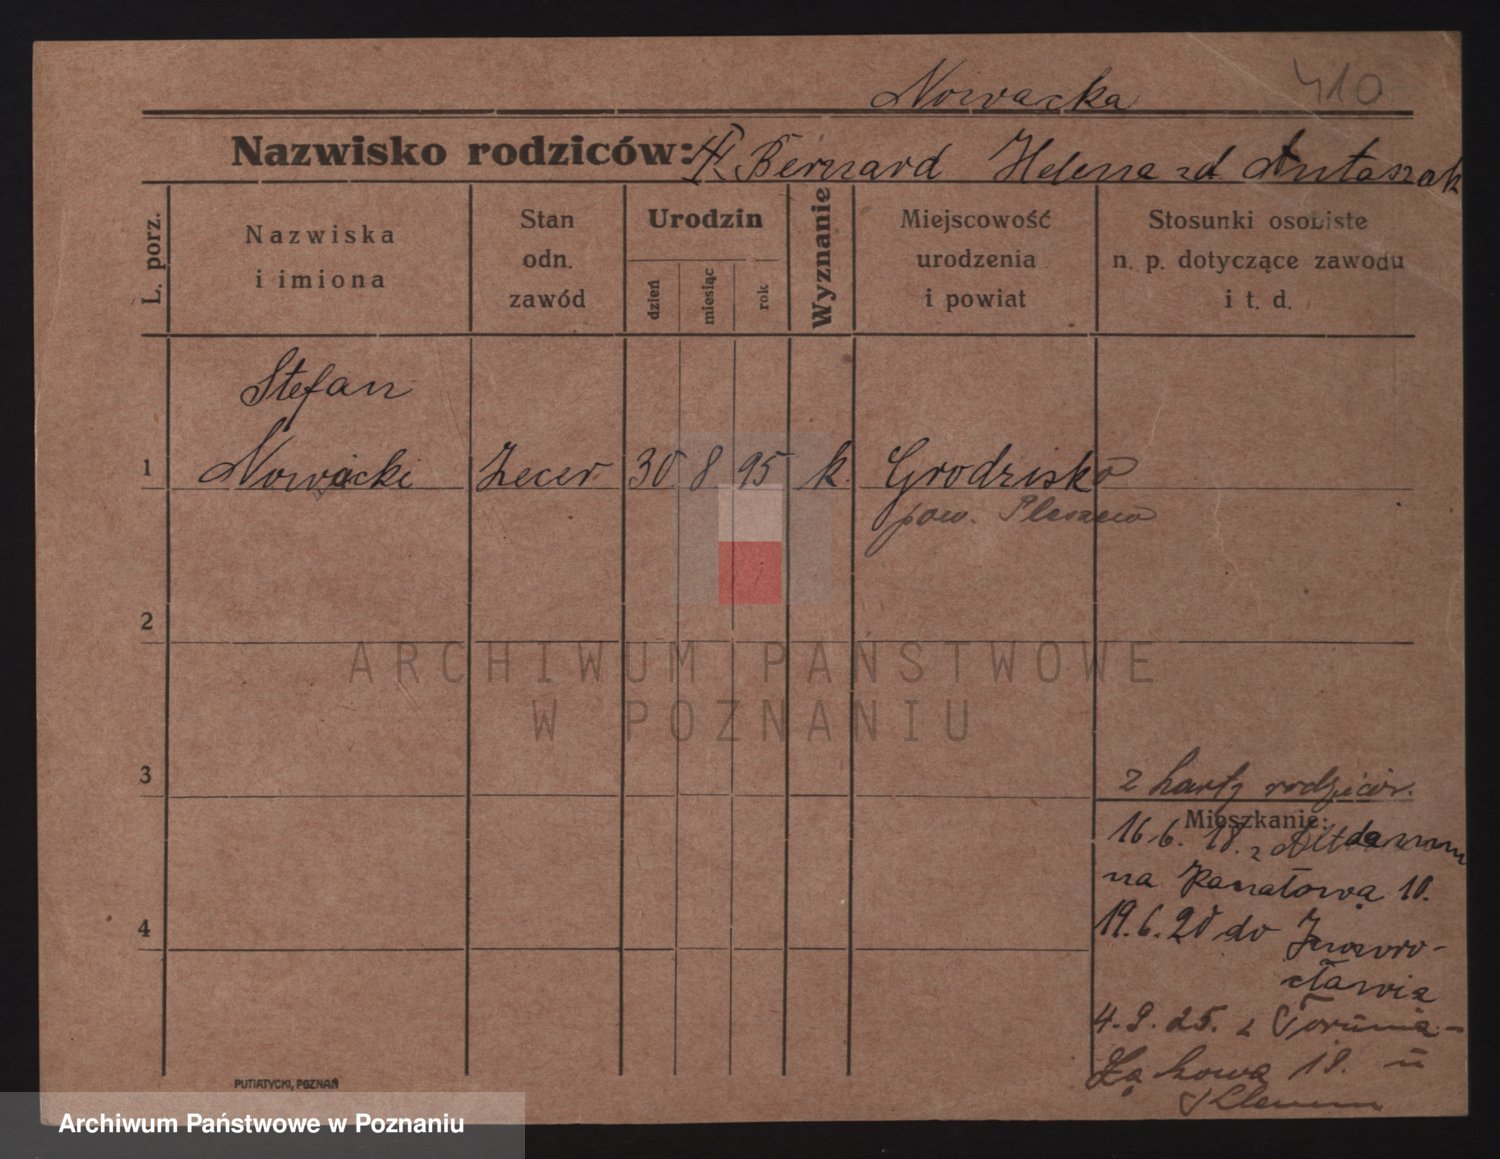 Nowacka 410
Nazwisko rodziców: Bernard Helena zd Antaszak
L. porz.
Nazwiska
i imiona
Stan
odn.
zawód
Urodzin
dzień
miesiąc
rok
Wyznanie
Miejscowość
urodzenia
i powiat
Stosunki osobiste
n. p. dotyczące zawodu
i t. d.
Stefan
1 Nowacki Zecer 30 8 95 k. Grodzisko
pow. Pleszew
2
ARCHIWUM PAŃSTWOWE
W POZNANIU
3 z karty rodziców.
Mieszkanie:
16.6. 18. z Altdamm
na Kanałową 18.
4 19.6.20 do Inowro-
cławia
4.9.25. z Torunia-
Łąkowa 18. u
PUTIATYCKI, POZNAŃ
Archiwum Państwowe w Poznaniu